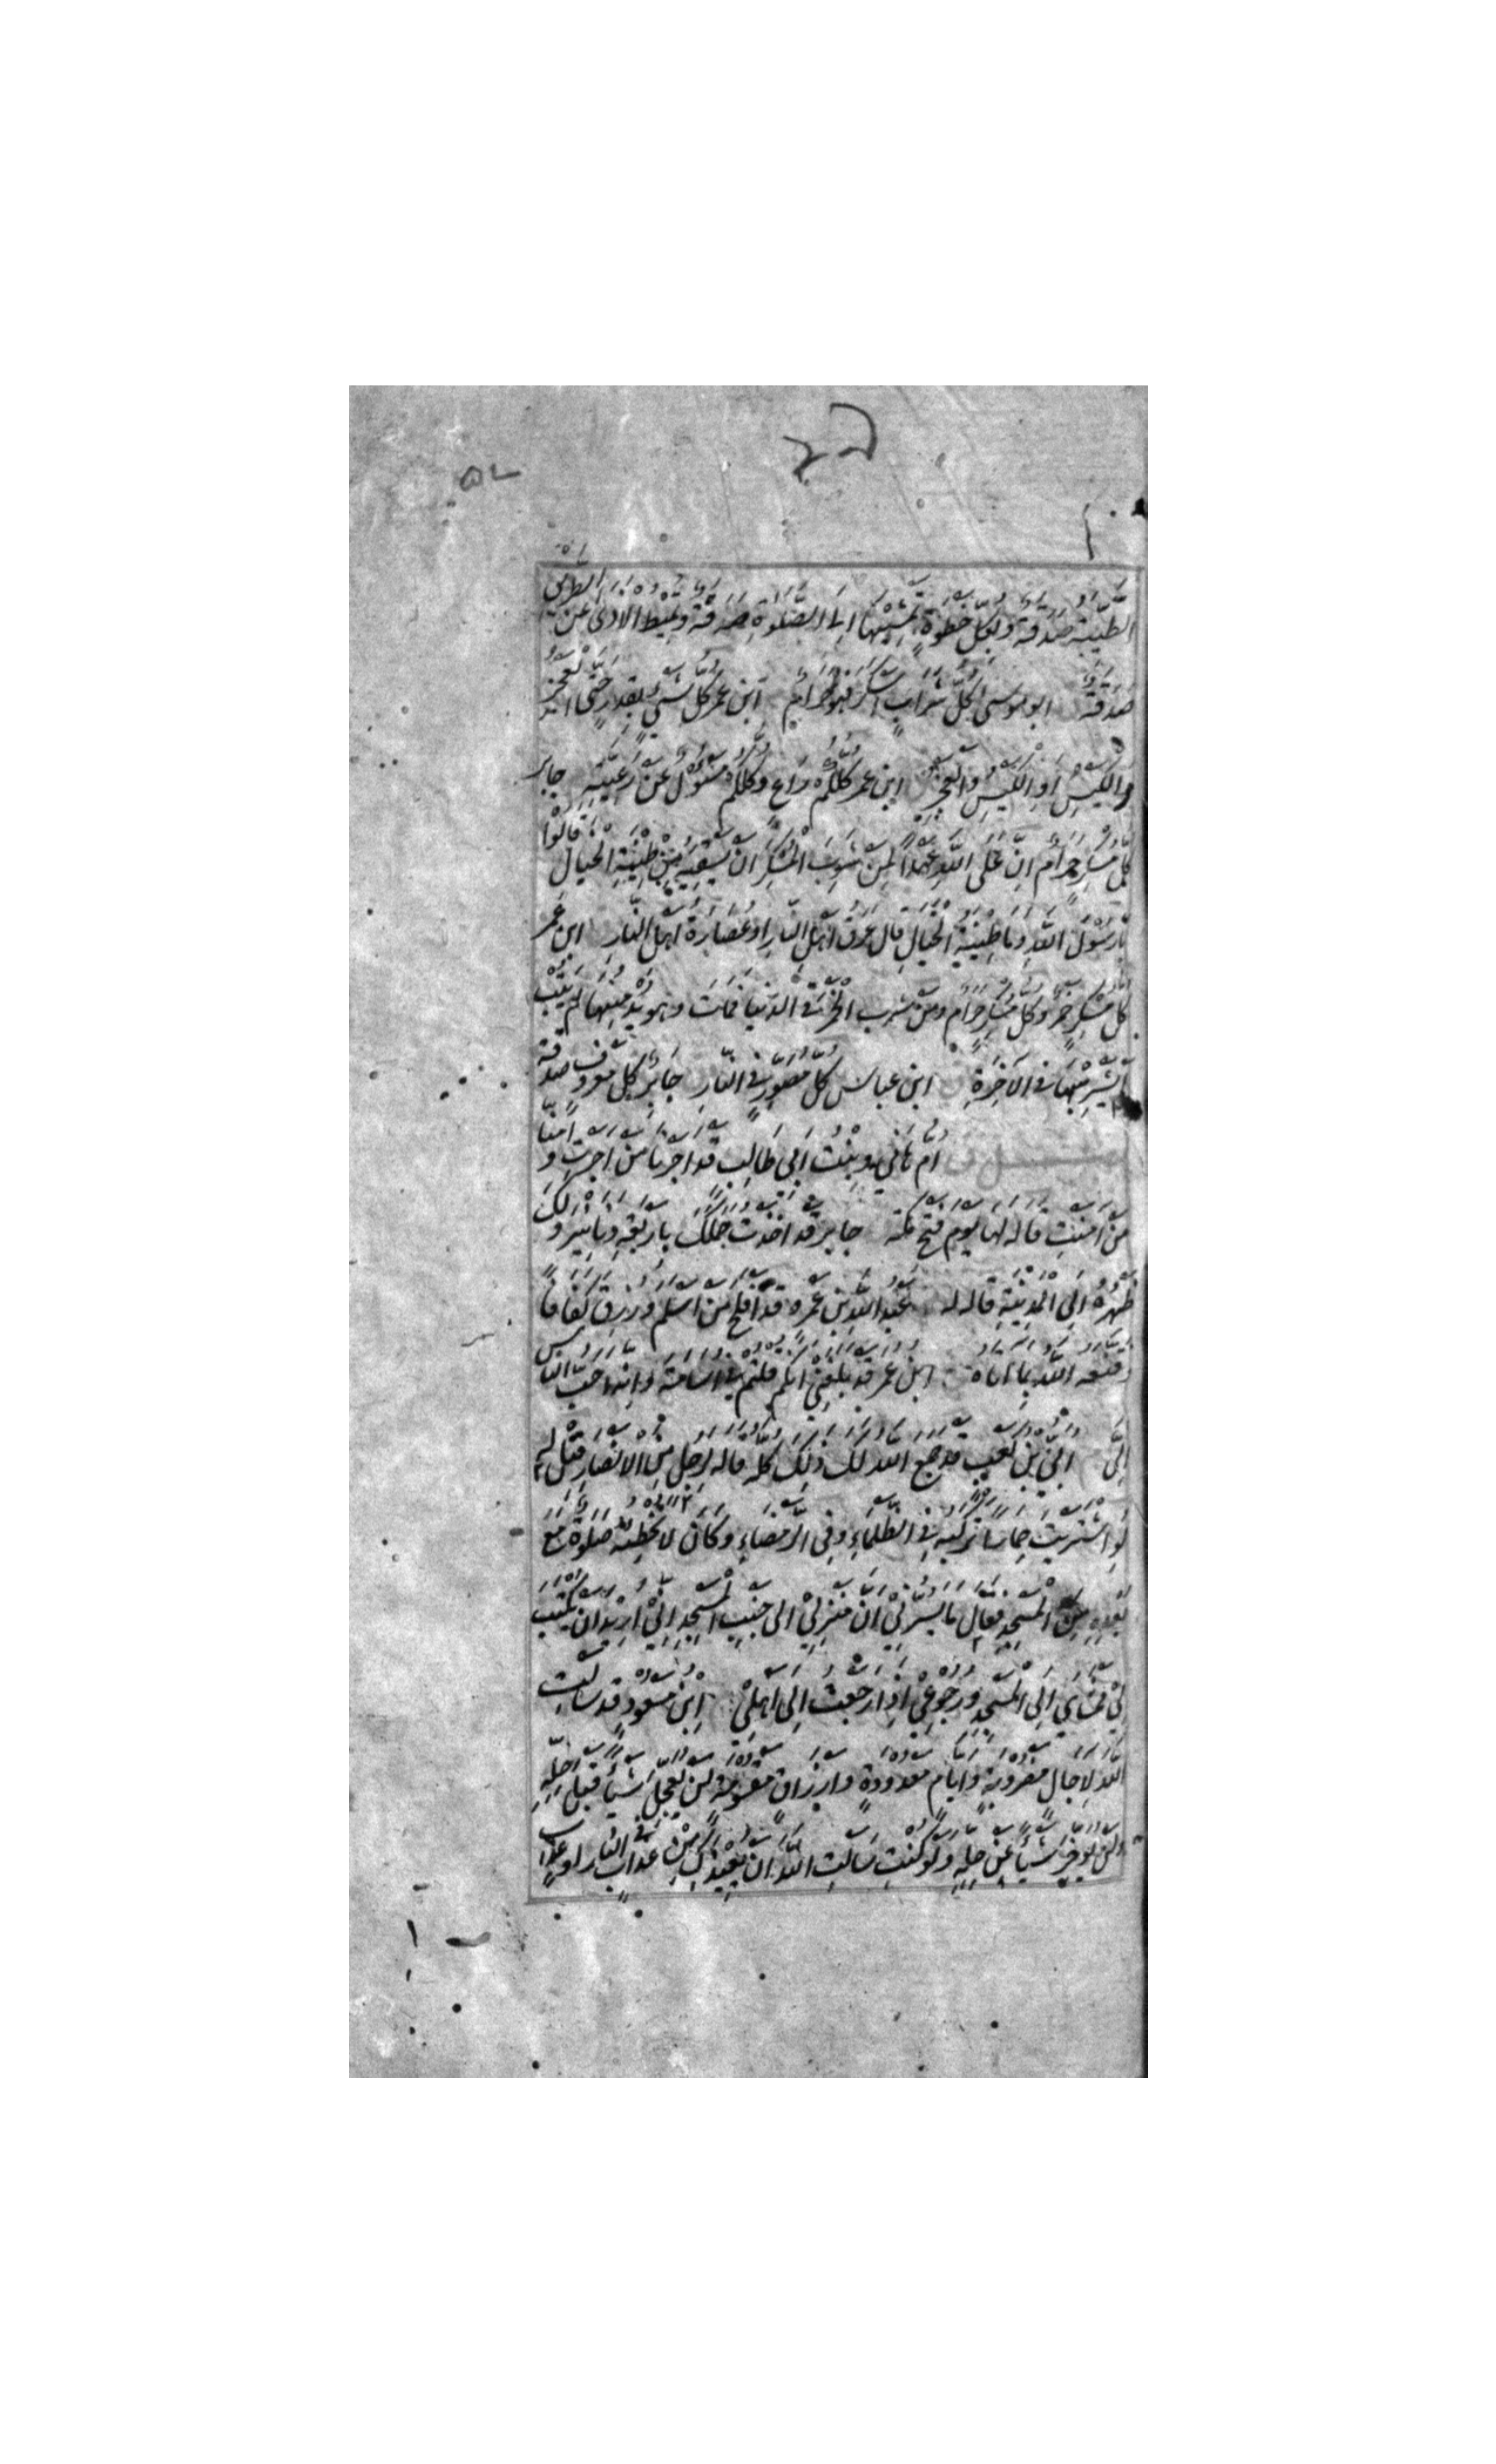 الطَّيِّبَةُ صَدَقَةٌ وَبِكُلِّ خُطْوَةٍ تَمْشِيْهَا اِلَى الصَّلٰوةِ صَدَقَةٌ وَتُمِيطُ الْاَذٰى عَنِ الطَّرِيْقِ
صَدَقَةٌ ابو موسى كُلُّ شَرَابٍ اَسْكَرَ فَهُوَ حَرَامٌ ابن عمر كُلُّ شَيْءٍ بِقَدَرٍ حَتَّى الْعَجْزِ
وَالْكَيْسِ اَوِ الْكَيْسِ وَالْعَجْزِ ابن عمر كُلُّكُمْ رَاعٍ وَكُلُّكُمْ مَسْؤُلٌ عَنْ رَعِيَّتِهِ جابر
كُلُّ مُسْكِرٍ حَرَامٌ اِنَّ عَلَى اللّٰهِ عَهْدًا لِمَنْ شَرِبَ الْمُسْكِرَ اَنْ يَسْقِيَهُ مِنْ طِيْنَةِ الْخَبَالِ قَالُوْا
يَا رَسُوْلَ اللّٰهِ وَمَا طِيْنَةُ الْخَبَالِ قَالَ عَرَقُ اَهْلِ النَّارِ اَوْ عُصَارَةُ اَهْلِ النَّارِ ابن عمر
كُلُّ مُسْكِرٍ خَمْرٌ وَكُلُّ مُسْكِرٍ حَرَامٌ وَمَنْ شَرِبَ الْخَمْرَ فِي الدُّنْيَا فَمَاتَ وَهُوَ يُدْمِنُهَا لَمْ يَتُبْ
لَمْ يَشْرَبْهَا فِي الْاٰخِرَةِ ابن عباس كُلُّ مُصَوِّرٍ فِي النَّارِ جابر كُلُّ مَعْرُوفٍ صَدَقَةٌ
اُمُّ هَانِي بِنْتُ اَبِي طَالِبٍ قَدْ اَجَرْنَا مَنْ اَجَرْتِ وَاٰمَنَّا
مَنْ اٰمَنْتِ قاله لها يَوْمَ فَتْحِ مَكَّةَ جابر قَدْ اَخَذْتُ جَمَلَكَ بِاَرْبَعَةِ دَنَانِيْرَ وَلَكَ
ظَهْرُهُ اِلَى الْمَدِيْنَةِ قاله له عَبْدُ اللّٰهِ بْنُ عَمْرٍو قَدْ اَفْلَحَ مَنْ اَسْلَمَ وَرُزِقَ كَفَافًا
وَقَنَّعَهُ اللّٰهُ بِمَا اٰتَاهُ ابن عمر قَدْ بَلَغَنِيْ اَنَّكُمْ قُلْتُمْ فِيْ اُسَامَةَ وَاِنَّهُ اَحَبُّ النَّاسِ
اِلَيَّ اُبَيُّ بْنُ كَعْبٍ قَدْ جَمَعَ اللّٰهُ لَكَ ذٰلِكَ كُلَّهُ قاله لِرَجُلٍ مِنَ الْاَنْصَارِ قِيْلَ لَهُ
لَوِ اشْتَرَيْتَ حِمَارًا تَرْكَبُهُ فِي الظَّلْمَاءِ وَفِي الرَّمْضَاءِ وَكَانَ لَا تُخْطِئُهُ صَلٰوةٌ مَعَ
بُعْدِهِ مِنَ الْمَسْجِدِ فَقَالَ مَا يَسُرُّنِيْ اَنَّ مَنْزِلِيْ اِلَى جَنْبِ الْمَسْجِدِ اِنِّيْ اُرِيْدُ اَنْ يُكْتَبَ
لِيْ مَمْشَايَ اِلَى الْمَسْجِدِ وَرُجُوْعِيْ اِذَا رَجَعْتُ اِلَى اَهْلِيْ ابن مسعود قَدْ سَاَلْتِ
اللّٰهَ لِاٰجَالٍ مَضْرُوْبَةٍ وَاَيَّامٍ مَعْدُوْدَةٍ وَاَرْزَاقٍ مَقْسُوْمَةٍ لَنْ يُعَجِّلَ شَيْئًا قَبْلَ اَجَلِهِ
وَلَنْ يُؤَخِّرَ شَيْئًا عَنْ حِلِّهِ وَلَوْ كُنْتِ سَاَلْتِ اللّٰهَ اَنْ يُعِيْذَكِ مِنْ عَذَابٍ فِي النَّارِ اَوْ عَذَابٍ